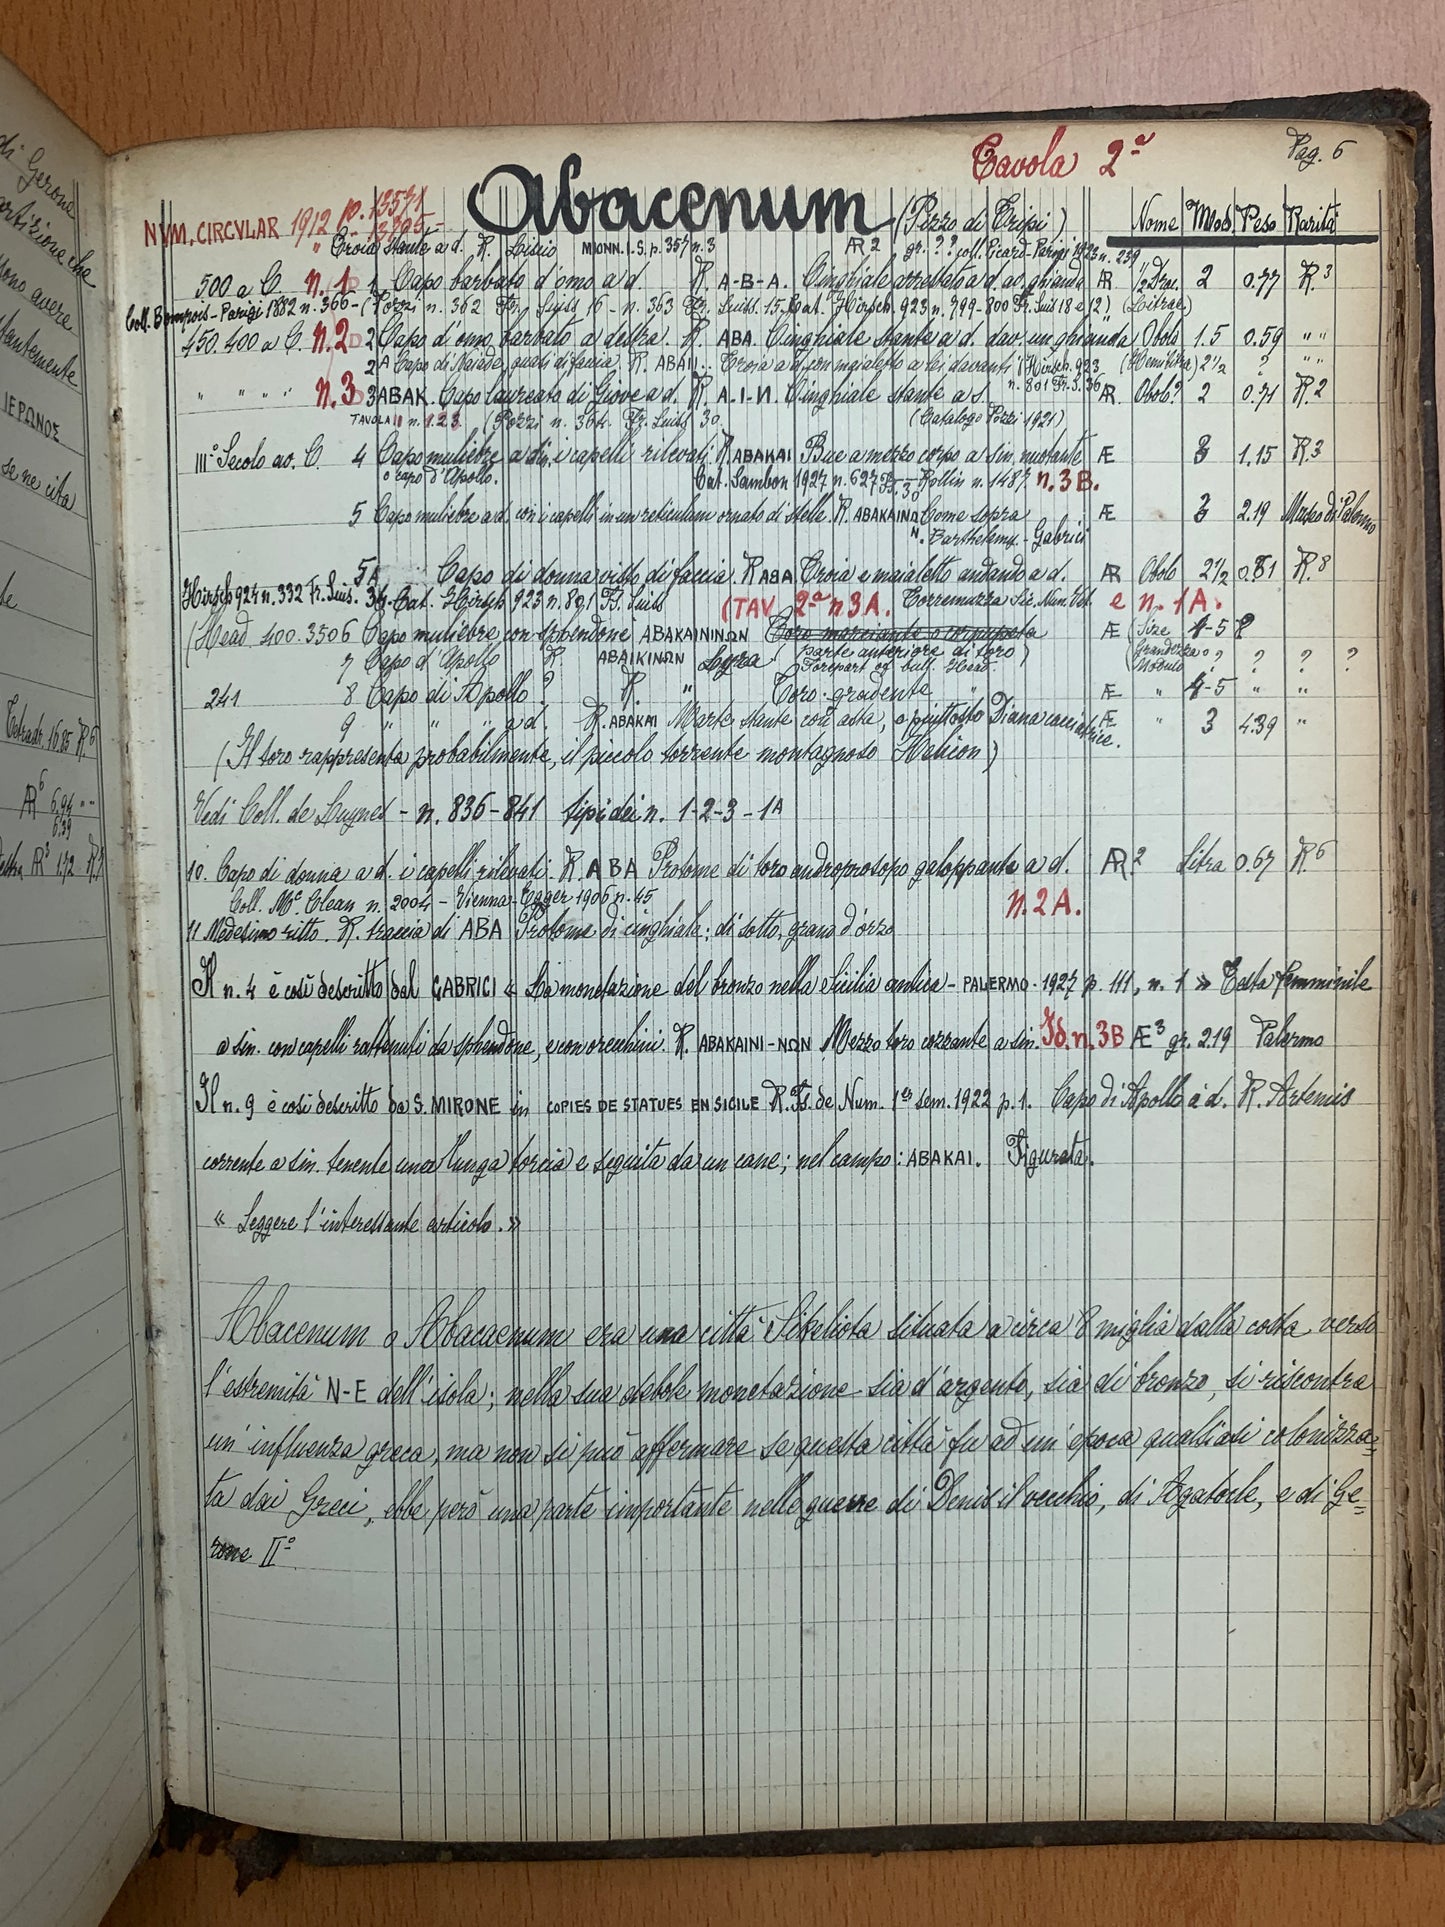 di Gerone
Tavola 2ª
Pag. 6
NVM. CIRCVLAR 1912 p. 13571
" " - 13705-
Abacenum (Pizzo di Tripi)
Nome Mod. Peso Rarità
Troia stante a d. R. Liscio MIONN. I. S. p. 357 n. 3 AR 2 gr. ?? coll. Picard - Parigi 1923 n. 239
500 a C. n. 1 1 Capo barbato d'omo a d. R. A-B-A. Cinghiale arrestato a d. av. ghianda AR ½ Drac. 2 0.77 R.3
Coll. Bompois - Parigi 1882 n. 366 - (Pozzi n. 362 Fr. Suiss 16 - n. 363 Fr. Suiss. 15. Cat. Hirsch. 923 n. 799-800 Fr. Suis 18 e 12) (Litrae)
450. 400 a C. n. 2 2 Capo d'omo barbato a destra. R. ABA. Cinghiale stante a d. dav. un ghianda " Obolo 1.5 0.59 " "
2A Capo di Naiade, quasi di faccia. R. ABAII.. Troia a d. con maialetto a lei davanti (Hirsch. 923 n. 801 Fr. S. 36 (Hemilitra) 2½ ? " "
" " " " n. 3 3 ABAK. Capo laureato di Giove a d. R. A-I-N. Cinghiale stante a s. AR. Obolo? 2 0.71 R.2
TAVOLA II n. 1.2.3. (Pozzi n. 364. Fr. Suiss 30 (Catalogo Pozzi 1921)
III° Secolo av. C. 4 Capo muliebre a sin. i capelli rilevati. R. ABAKAI Bue a mezzo corpo a sin. nuotante Æ 3 1.15 R.3
o capo d'Apollo. Cat. Sambon 1927 n. 627 Fr. 30 - Rollin n. 1487 n. 3 B.
5 Capo muliebre a d. con i capelli in un reticulum ornato di stelle. R. ABAKAINΩN Come sopra Æ 3 2.19 Museo di Palermo
Barthelemy - Gabrici
5A Capo di donna visto di faccia. R. ABA. Troia e maialetto andando a d. AR Obolo 2½ 0.81 R.8
Hirsch 924 n. 332 Fr. Suis. 34 - Cat. Hirsch 923 n. 801 Fr. Suiss (TAV. 2ª n 3 A. Torremuzza Sic. Num. Vet. e n. 1 A.
(Head 400.350 6 Capo muliebre con sphendone ABAKAININΩN Toro marciante o cornupeta Æ (Size 4-5 ?
(parte anteriore di toro) Grandezza o
7 Capo d'Apollo R. ABAIKINΩN Lyra Forepart of bull. Head. Modulo ? ? ? ?
241 8 Capo di Apollo ? R. " Toro gradente " Æ " 4-5 " "
9 " " " a d. R. ABAKAI Marte stante con asta, o piuttosto Diana cacciatrice. Æ " 3 4.39 "
(Il toro rappresenta probabilmente, il piccolo torrente montagnoso Helicon)
Vedi Coll. de Luynes - n. 836-841 tipi dei n. 1-2-3-1A
10. Capo di donna a d. i capelli rilevati. R. ABA Protome di toro androprosopo galoppante a d. AR 2 Litra 0.67 R6
Coll. Mc Clean n. 2004 - Vienna - Egger 1906 n. 45 n. 2 A.
11 Medesimo ritto. R. traccia di ABA Protome di cinghiale; di sotto, grano d'orzo
Il n. 4 è così descritto dal GABRICI « La monetazione del bronzo nella Sicilia antica - PALERMO - 1927 p. 111, n. 1 » Testa femminile
a sin. con capelli rattenuti da sphendone, e con orecchini. R. ABAKAINI-NΩN Mezzo toro cozzante a sin. Id. n. 3 B Æ3 gr. 2.19 Palermo
Il n. 9 è così descritto da S. MIRONE in COPIES DE STATUES EN SICILE R. Fs. de Num. 1er sem. 1922 p. 1. Capo di Apollo a d. R. Artemis
corrente a sin. tenente una lunga torcia e seguita da un cane; nel campo: ABAKAI. Figurata.
« Leggere l'interessante articolo. »
Abacenum o Abacaenum era una città Sikeliota situata a circa 8 miglia dalla costa verso
l'estremità N-E dell'isola; nella sua debole monetazione sia d'argento, sia di bronzo, si riscontra
un'influenza greca, ma non si può affermare se questa città fu ad un'epoca qualsiasi colonizza=
ta dai Greci, ebbe però una parte importante nelle guerre di Denis il vecchio, di Agatocle, e di Ge=
rone II°
IEPΩNOΣ
se ne cita
Tetradr. 16.85 R.6
AR6 6.94 " "
6.39
AR3 1.72 R.